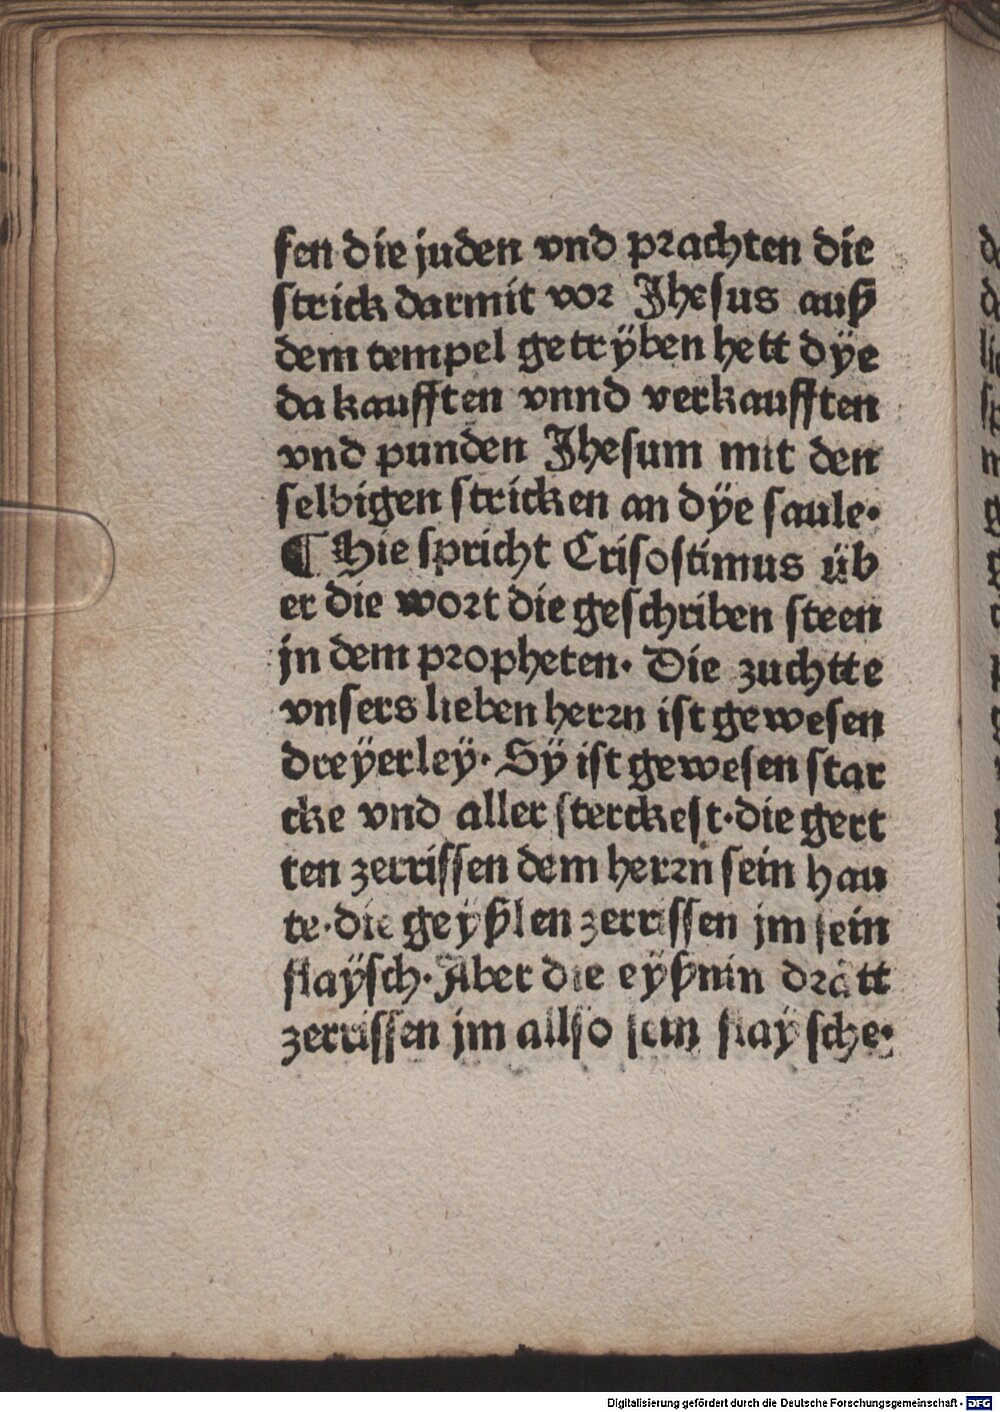 sen die juden vnd prachten die
strick darmit vor Jhesus auß
dem tempel getrÿben hett dÿe
da kaufften vnnd verkaufften
vnd punden Jhesum mit den
selbigen stricken an dÿe saule·
¶ Hie spricht Crisostimus üb
er die wort die geschriben steen
jn dem propheten· Die zuchtte
vnsers lieben herrn ist gewesen
dreÿerleÿ· Sÿ ist gewesen star
cke vnd aller sterckest·die gert
ten zerrissen dem herrn sein hau
te·die geÿßlen zerrissen jm sein
flaÿsch· Aber die eÿßnin dratt
zerrissen jm allso sein flaÿsche·
Digitalisierung gefördert durch die Deutsche Forschungsgemeinschaft - DFG